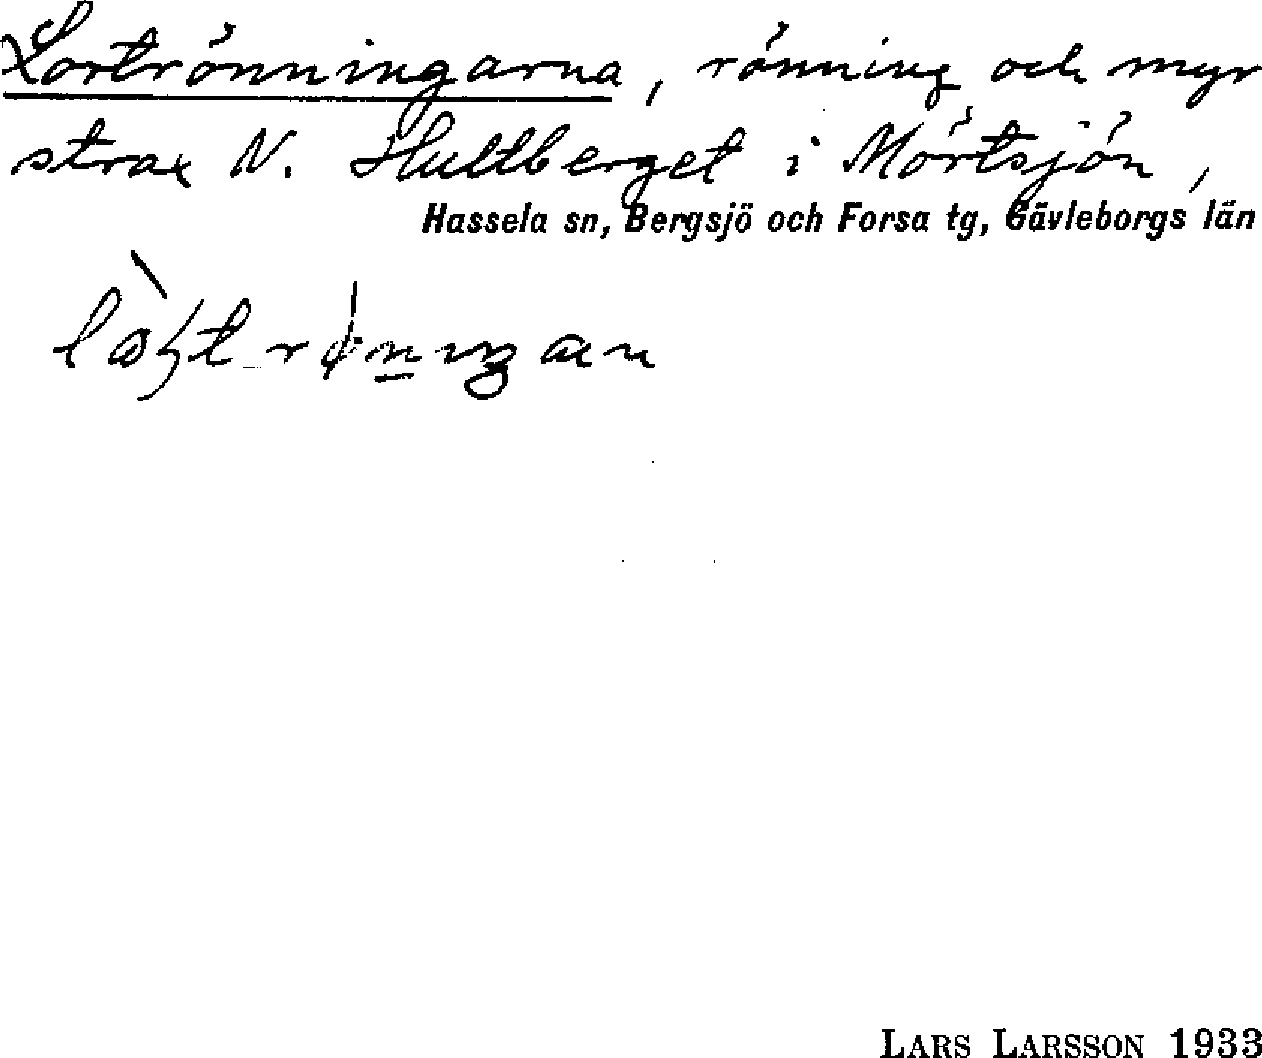 Lortrönningarna, rönning och myr
strax N. Hultberget i Mörtsjön,
Hassela sn, Bergsjö och Forsa tg, Gävleborgs län
LARS LARSSON 1933